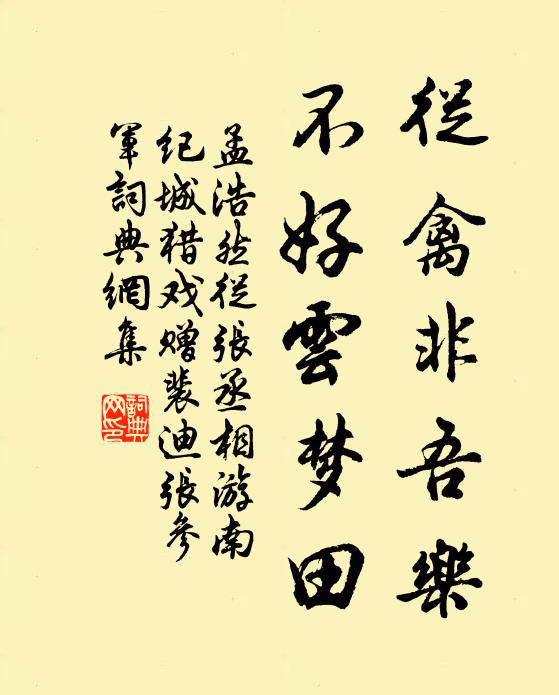 從禽非吾樂
不好雲梦田
孟浩然從張丞相游南
纪城猎戏赠裴迪張参
軍詞典網集
詞典
网印